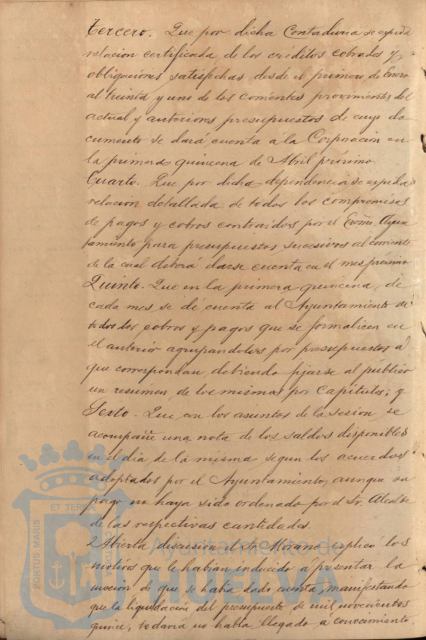 Tercero. Que por dicha Contaduria se expida
relacion certificada de los créditos cobrados y
obligaciones satisfechas desde el primero de Enero
al treinta y uno de los corrientes provinientes del
actual y anteriores presupuestos de cuyo do
cumento se dará cuenta a la Corporación en
la primera quincena de Abril próximo.
Cuarto. Que por dicha dependencia se expida
relacion detallada de todos los compromisos
de pagos y cobros contraidos por el Excmo. Ayun
tamiento para presupuestos sucesivos al corriente
de la cual deberá darse cuenta en el mes próximo
Quinto. Que en la primera quincena, de
cada mes se dé cuenta al Ayuntamiento de
todos los cobros y pagos que se formalicen en
el anterior agrupandolos por presupuestos a
que correspondan, debiendo fijarse al publico
un resumen de los mismos por Capitulos; y
Sexto. Que con los asuntos de la sesion se
acompañe una nota de los saldos disponibles
en el dia de la misma segun los acuerdos
adoptados por el Ayuntamiento, aunque su
pago no haya sido ordenado por el Sr. Alcalde
de las respectivas cantidades.
Abierta discusion el Sr. Morano explicó los
motivos que le habian inducido a presentar la
mocion de que se habia dado cuenta, manifestando
que la liquidación del presupuesto de mil novecientos
quince, todavia no habia llegado a conocimiento
ET TERRAE
PORTUS MARIS
Ayuntamiento de
HUELVA